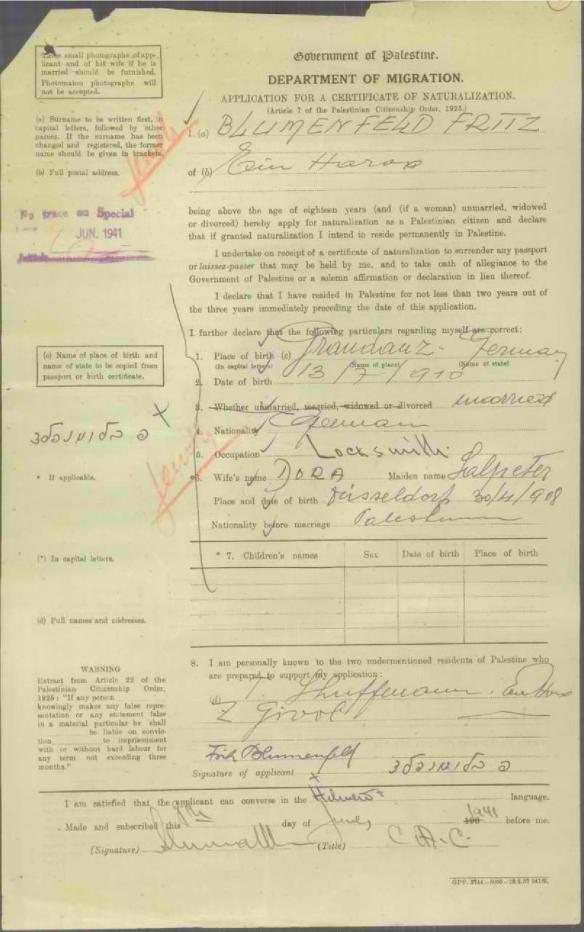 Three small photographs of app-
licant and of his wife if he is
married should be furnished.
Photomaton photographs will
not be accepted.
Government of Palestine.
DEPARTMENT OF MIGRATION.
APPLICATION FOR A CERTIFICATE OF NATURALIZATION.
(Article 7 of the Palestinian Citizenship Order, 1925.)
(a) Surname to be written first, in
capital letters, followed by other
names. If the surname has been
changed and registered, the former
name should be given in brackets.
(b) Full postal address.
I. (a) BLUMENFELD FRITZ
of (b) Ein Harod
No trace on Special
JUN. 1941
being above the age of eighteen years (and (if a woman) unmarried, widowed
or divorced) hereby apply for naturalization as a Palestinian citizen and declare
that if granted naturalization I intend to reside permanently in Palestine.
I undertake on receipt of a certificate of naturalization to surrender any passport
or laissez-passer that may be held by me, and to take oath of allegiance to the
Government of Palestine or a solemn affirmation or declaration in lieu thereof.
I declare that I have resided in Palestine for not less than two years out of
the three years immediately preceding the date of this application.
I further declare that the following particulars regarding myself are correct:
(c) Name of place of birth and
name of state to be copied from
passport or birth certificate.
1. Place of birth (c) Graudanz - Germany
(In capital letters) (Name of place) (Name of state)
2. Date of birth 13/7/910
3. Whether unmarried, married, widowed or divorced married
4. Nationality German
5. Occupation Locksmith
family
* If applicable.
*6. Wife's name DORA Maiden name Salpeter
Place and date of birth Düsseldorf 30/4/908
Nationality before marriage
(*) In capital letters.
* 7. Children's names Sex Date of birth Place of birth
(d) Full names and addresses.
8. I am personally known to the two undermentioned residents of Palestine who
are prepared to support my application:
(d)
Z Givol
WARNING
Extract from Article 22 of the
Palestinian Citizenship Order,
1925: "If any person
knowingly makes any false repre-
sentation or any statement false
in a material particular he shall
be liable on convic-
tion to imprisonment
with or without hard labour for
any term not exceeding three
months."
Fritz Blumenfeld
Signature of applicant x
I am satisfied that the applicant can converse in the Hebrew language.
Made and subscribed this day of 1941 before me.
(Signature) (Title)